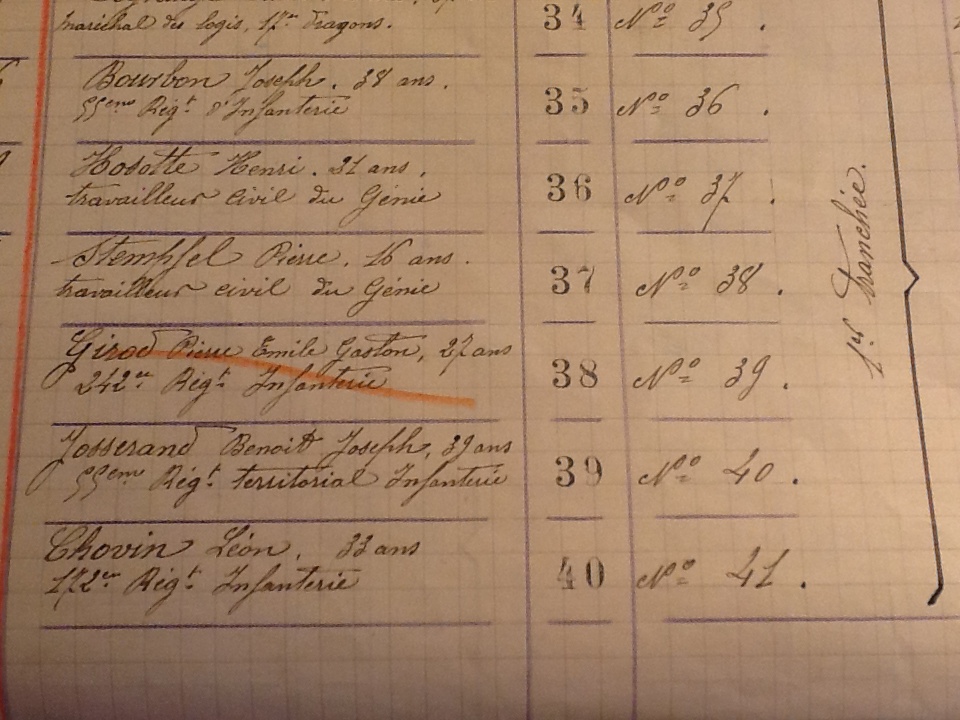 maréchal des logis, 17e dragons. 34 No 35 .
Bourbon Joseph. 38 ans.
55eme Régt d'Infanterie 35 No 36 .
Hosotte Henri. 31 ans.
travailleur civil du Génie 36 No 37 .
Stempfel Pierre. 16 ans.
travailleur civil du Génie 37 No 38 .
Girod Pierre Emile Gaston, 27 ans
242e Régt Infanterie 38 No 39 .
Josserand Benoit Joseph, 39 ans
55eme Régt territorial Infanterie 39 No 40 .
Chovin Léon, 33 ans
172e Régt Infanterie 40 No 41 .
1er tranchée.